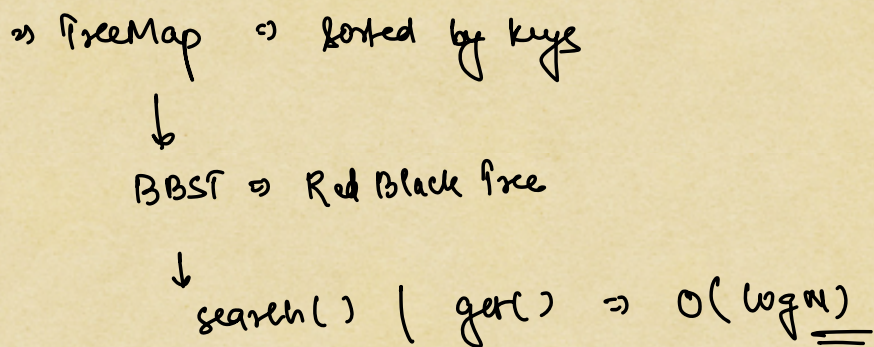 => TreeMap => Sorted by keys
↓
BBST => Red Black Tree
↓
search() | get() => O(log N)